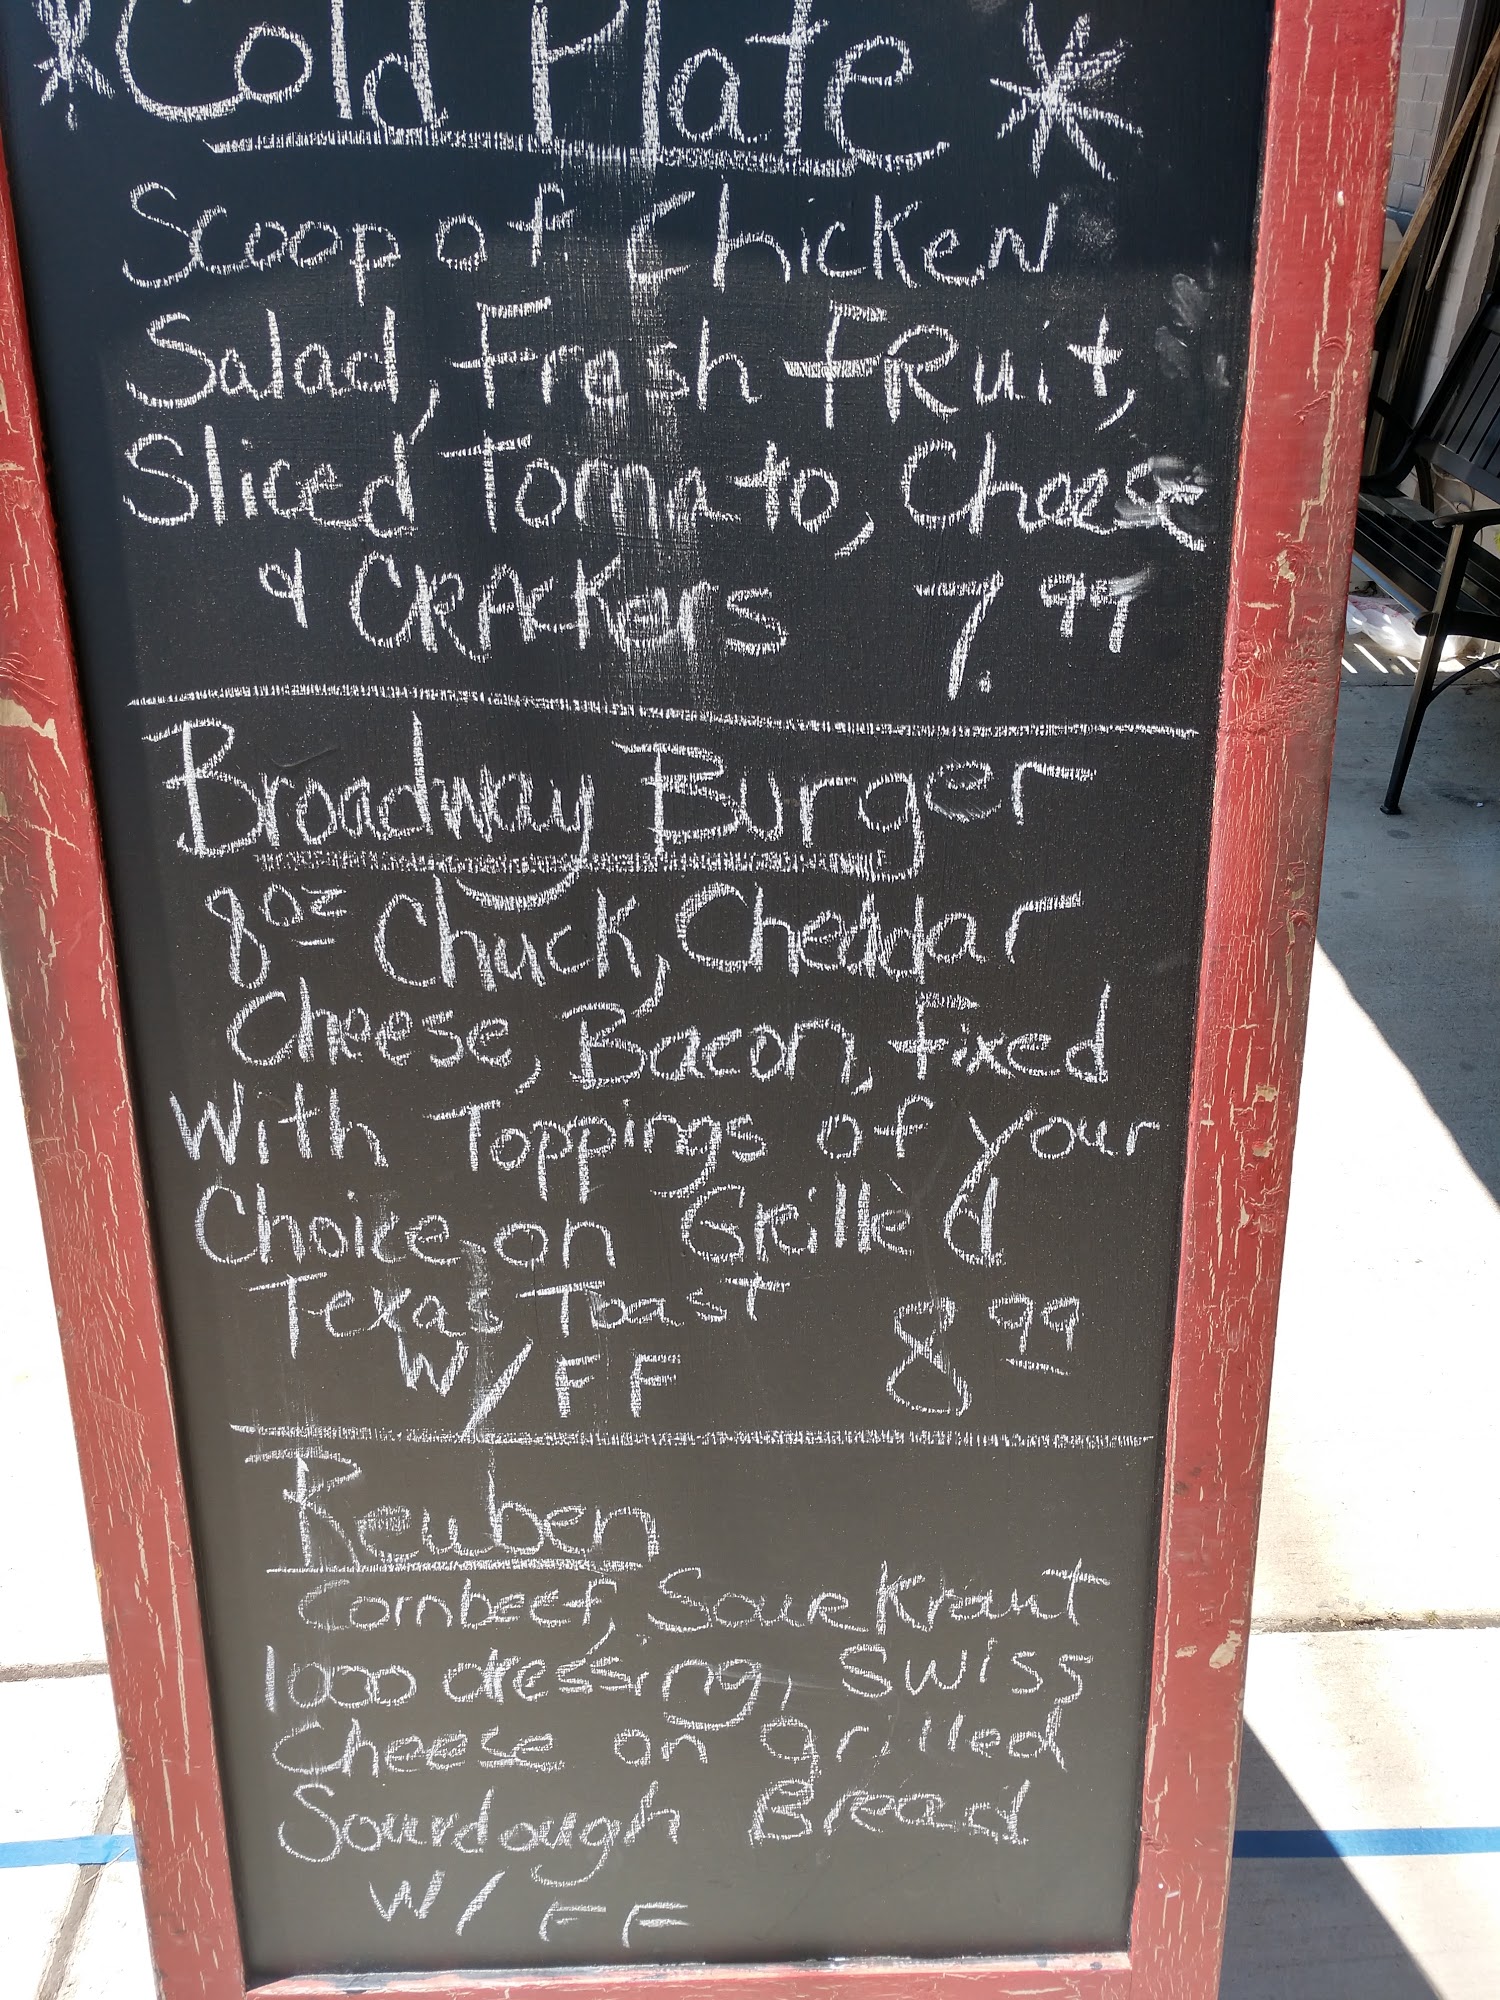 Cold Plate
Scoop of Chicken
Salad, Fresh FRuit,
Sliced Tomato, Cheese
& CRAckers 7.99
Broadway Burger
8oz Chuck, Cheddar
Cheese, Bacon, Fixed
With Toppings of your
Choice on Grilled
Texas Toast 8 99
W/FF
Reuben
Cornbeef, Sourkraut
1000 dressing, Swiss
Cheese on grilled
Sourdough Bread
W/FF